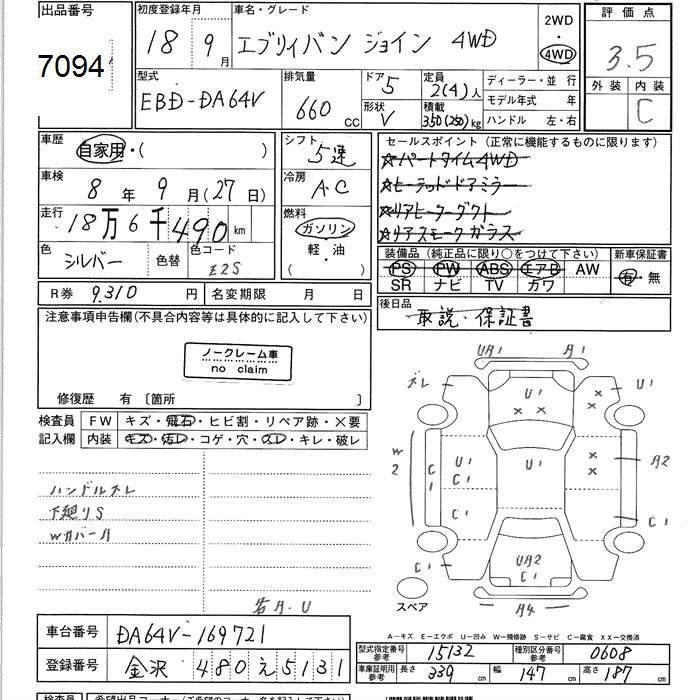 出品番号 7094
初度登録年月 18 9月
車名・グレード エブリィバン ジョイン 4WD
2WD ・ 4WD
評価点 3.5
外装 内装 C
型式 EBD-DA64V
排気量 660 cc
ドア 5
形状 V
定員 2(4)人
積載 350(250)kg
ディーラー・並行
モデル年式 年
ハンドル 左・右
車歴 自家用・( )
車検 8年 9月(27日)
走行 18万6千490km
色 シルバー 色替 色コード Z2S
シフト 5速
冷房 A・C
燃料 ガソリン
軽・油
( )
セールスポイント (正常に機能するものに限ります)
☆パートタイム4WD
☆ヒーテッドドアミラー
☆リアヒーターダクト
☆リアスモークガラス
装備品 (純正品に限り○をつけて下さい) 新車保証書
PS PW ABS エアB AW 有・無
SR ナビ TV カワ
R券 9.310 円 名変期限 月 日
後日品
取説・保証書
注意事項申告欄(不具合内容等は具体的に記入して下さい)
ノークレーム車
no claim
修復歴 有 〔箇所 〕
検査員 記入欄
FW キズ・飛石・ヒビ割・リペア跡・×要
内装 キズ・汚レ・コゲ・穴・スレ・キレ・破レ
ハンドルスレ
下廻りS
Wカバー月
UA1 A1
ズレ U1 U1
W2 C1 U1 C1 U1 A2
C1 C1
C1 UA2 C1
A4
スペア
A-キズ E-エクボ U-凹み W-補修跡 S-サビ C-腐食 XX-交換済
車台番号 DA64V-169721
登録番号 金沢 480 え 5131
型式指定番号 参考 15132 種別区分番号 参考 0608
車庫証明用 参考 長さ 339 cm 幅 147 cm 高さ 187 cm